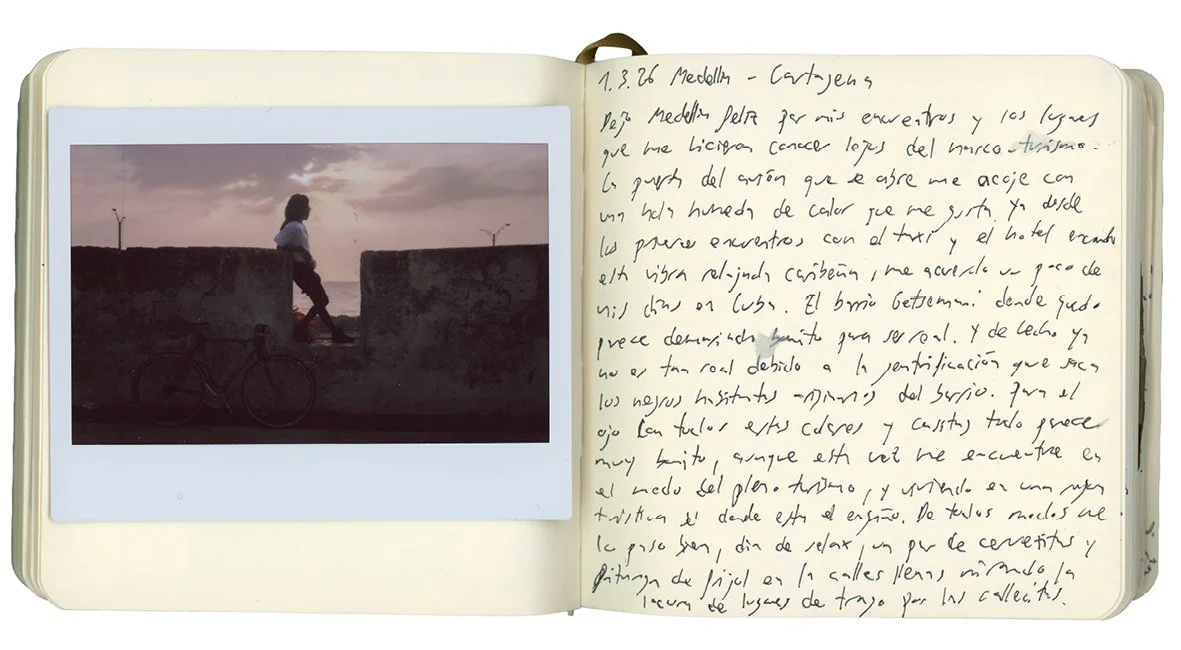 1.3.26 Medellín - Cartagena
Dejo Medellín feliz por mis encuentros y los lugares
que me hicieron conocer lejos del narco-turismo.
La puerta del avión que se abre me acoje con
una hola humeda de calor que me gusta. ya desde
los primeros encuentros con el taxi y el hotel
esta vibra relajada caribeña, me acuerdo un poco de
mis días en Cuba. El barrio Getsemaní donde quedo
parece demasiado bonito para ser real. Y de hecho ya
no es tan real debido a la gentrificación que saca
los negros habitantes originarios del barrio. Para el
ojo con todos estos colores y casitas todo parece
muy bonito, aunque esta vez me encuentre en
el medio del pleno turismo, y viviendo en una
turistica sé donde esta el engaño. De todos modos me
la paso bien, día de relax, un par de cervezitas y
de frijol en la calles llenas mirando la
locura de lugares de trago por las callecitas.